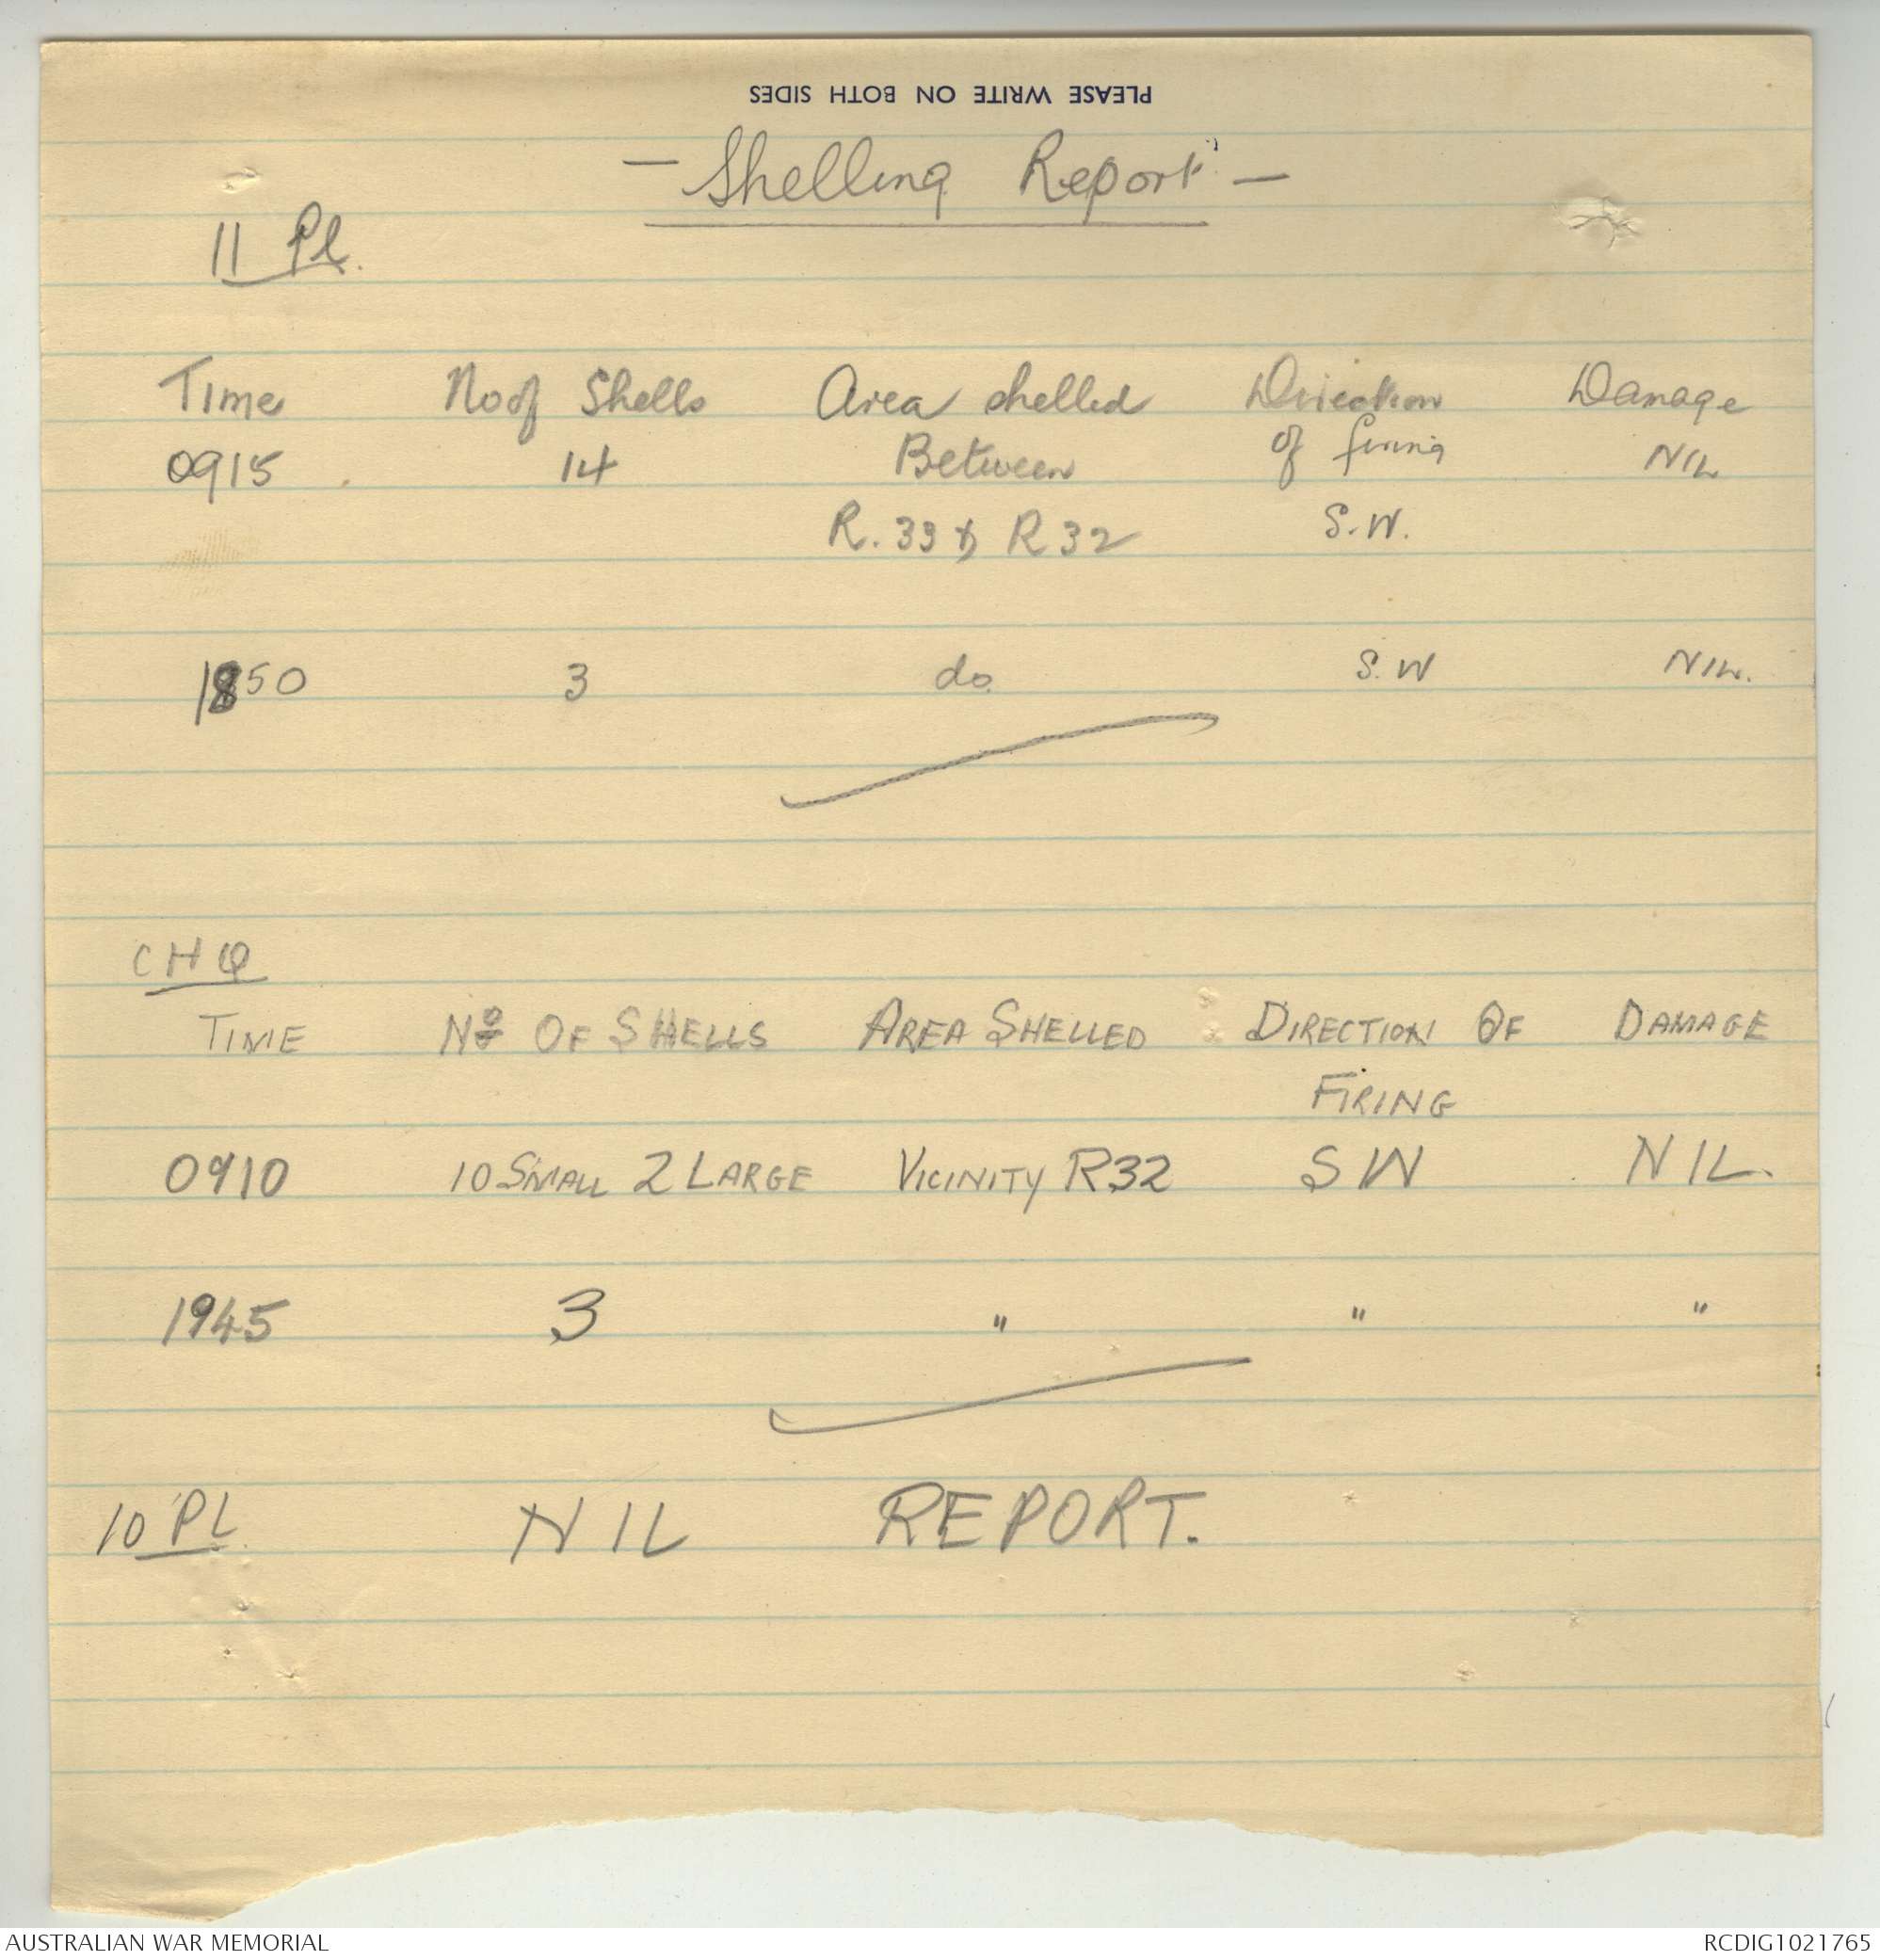 PLEASE WRITE ON BOTH SIDES
- Shelling Report -
11 Pl.
Time No of Shells Area shelled Direction Damage
0915 14 Between of firing NIL
R. 33 & R 32 S.W.
1850 3 do. S.W NIL.
CHQ
TIME No OF SHELLS AREA SHELLED DIRECTION OF DAMAGE
FIRING
0910 10 SMALL 2 LARGE VICINITY R32 SW NIL.
1945 3 " " "
10 PL NIL REPORT.
AUSTRALIAN WAR MEMORIAL RCDIG1021765